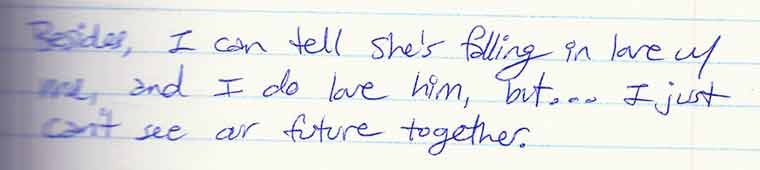 Besides, I can tell she's falling in love w/
me, and I do love him, but... I just
can't see our future together.